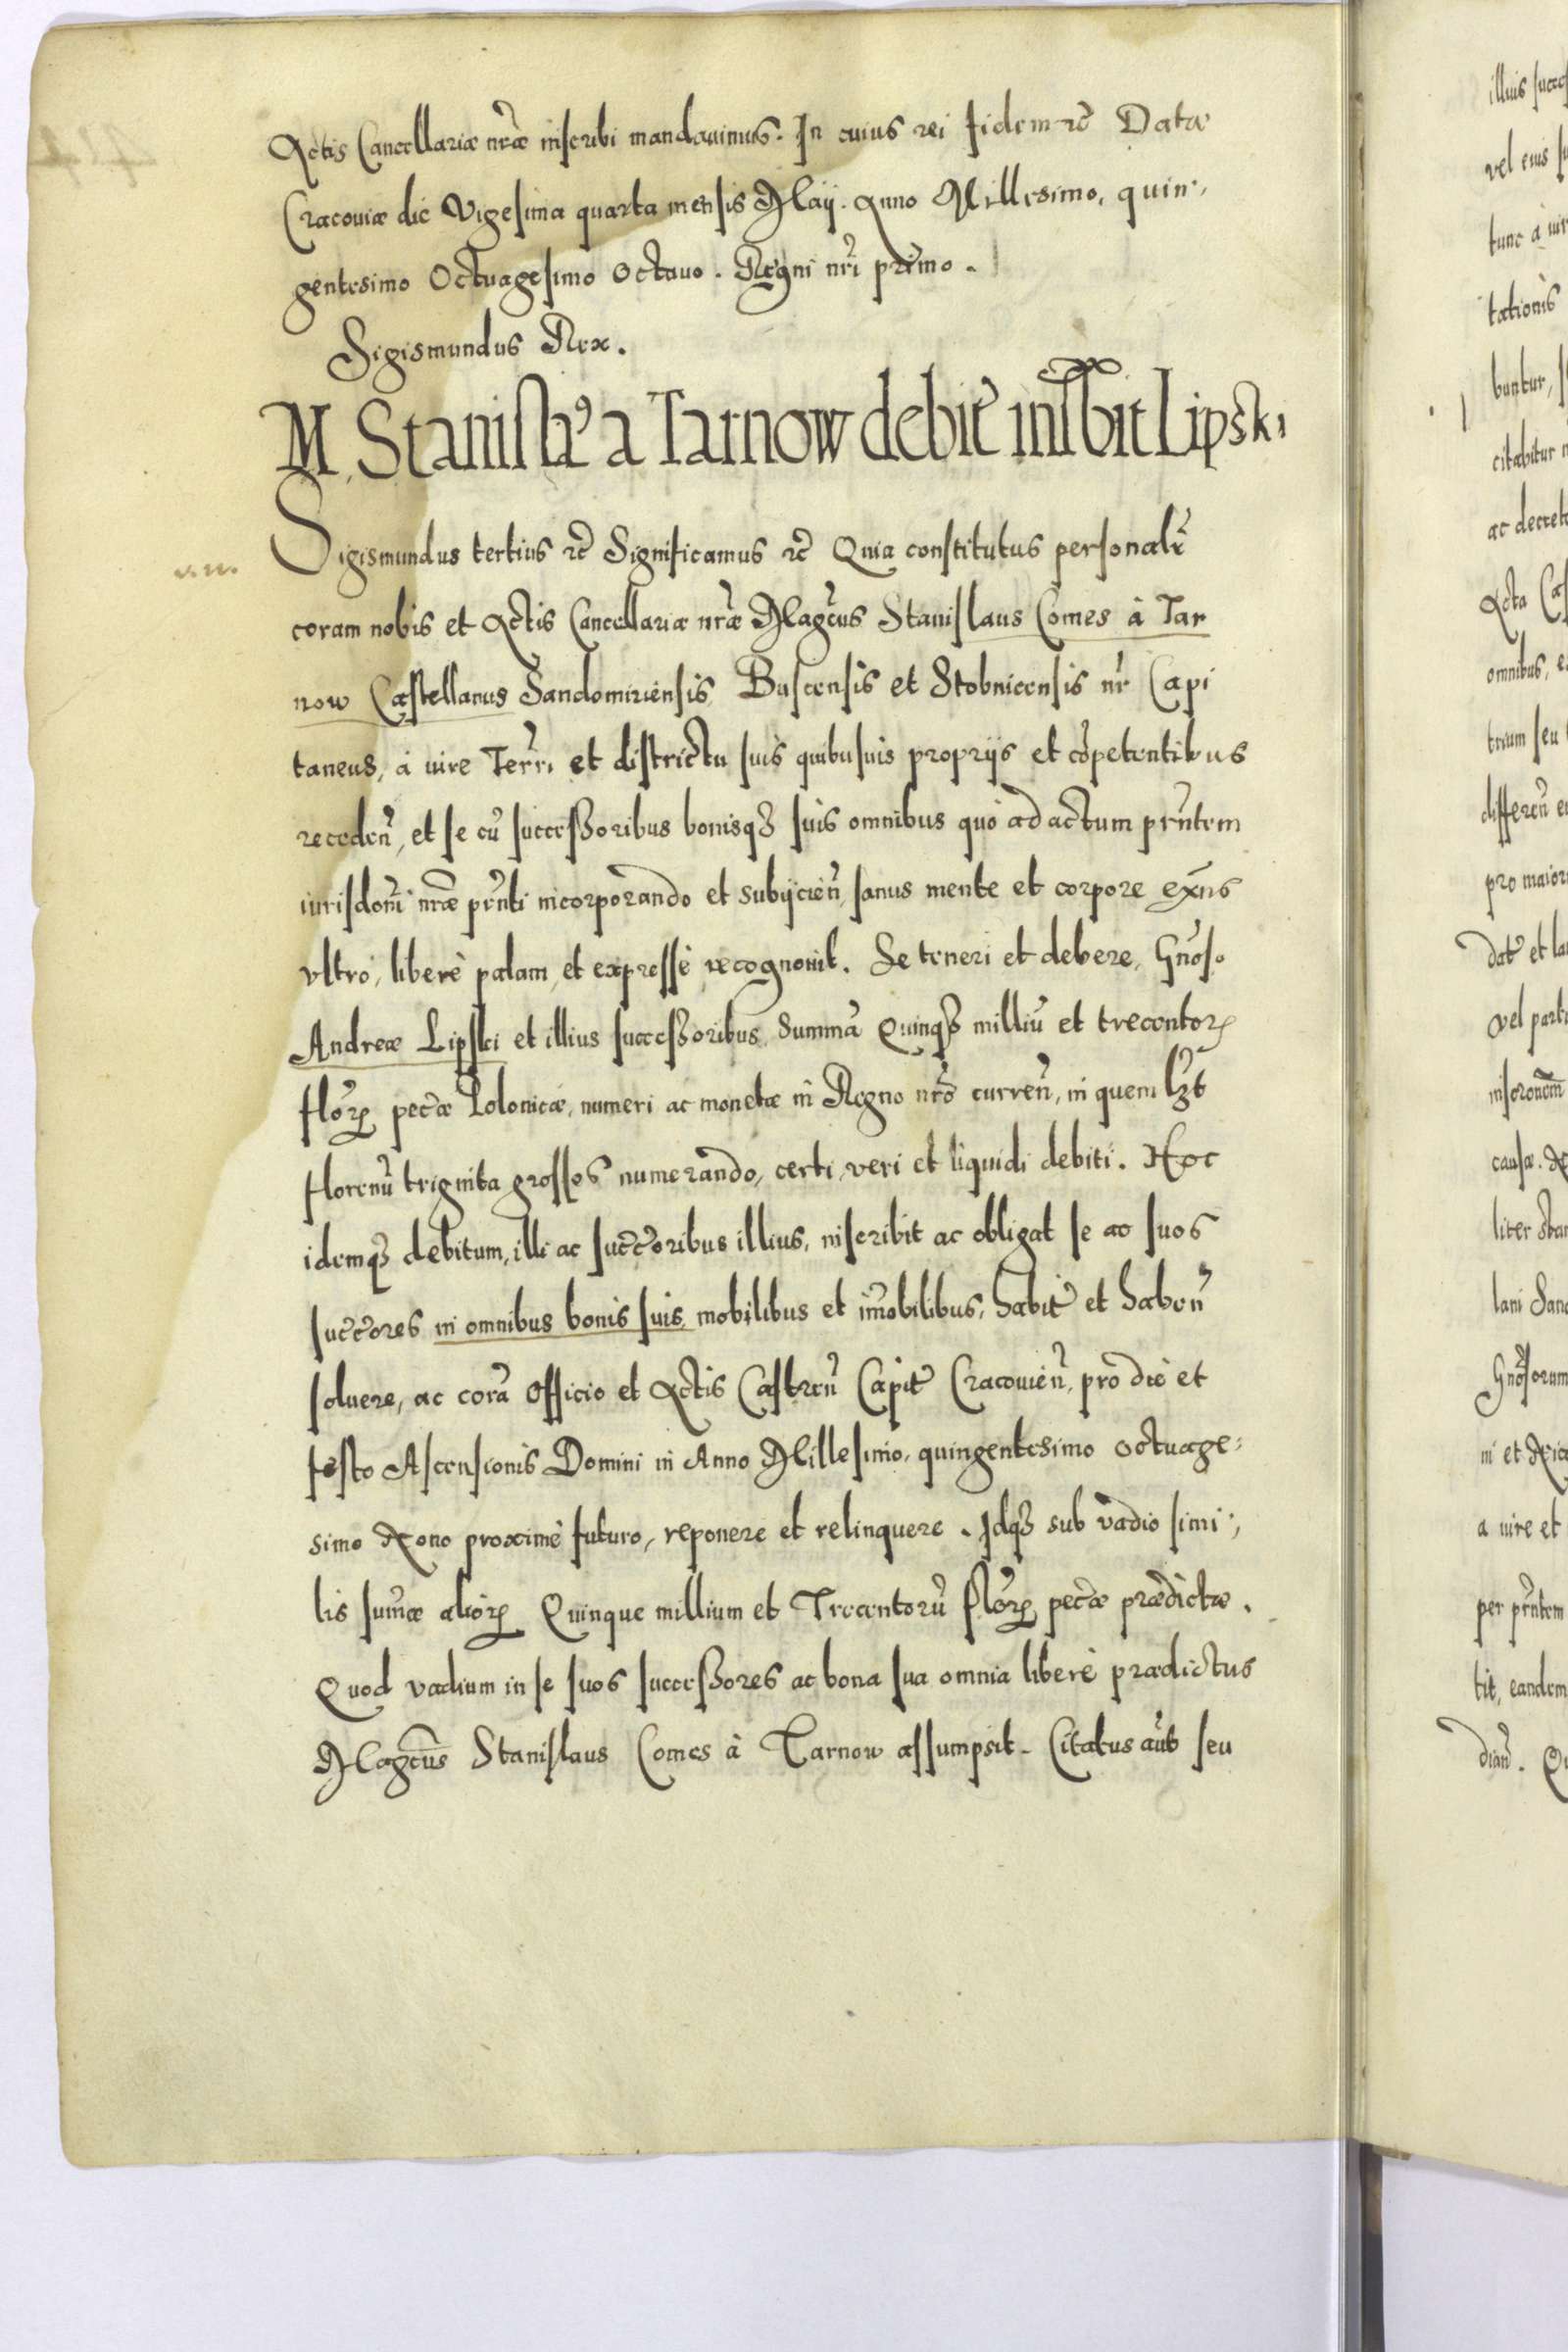 Actis Cancellariæ nr̃æ inscribi mandauimus. In cuius rei fidem rc̃ Datæ
Cracouiæ die Vigesima quarta mensis Maij. Anno Millesimo, quin-
gentesimo Octuagesimo Octauo. Regni nr̃i primo.
Sigismundus Rex.
M. Stanisla9 a Tarnow debit̃ inscbit Lipski
Sigismundus tertius rc̃ Significamus rc̃ Quia constitutus personalr̃
coram nobis et Actis Cancellariæ nr̃æ Magc̃us Stanislaus Comes à Tar
now Castellanus Sandomiriensis, Buscensis et Stobnicensis nr̃ Capi
taneus, à iure Terri et districtu suis quibusuis proprijs et cõpetentibus
receden̄, et se cũ successoribus bonisq₃ suis omnibus quò ad actum prñtem
iurisdoni nr̃æ prñti incorporando et subijcien̄, sanus mente et corpore ex̃ns
vltrò, liberè palam, et expressè recognouit. Se teneri et debere, Gño̅so
Andreæ Lipski et illius successoribus, Summã Quinq₃ milliũ et trecentorꝝ
flõrꝝ pec̃æ Polonicæ, numeri ac monetæ in Regno nr̃o curren̄, in quem lz̃t
florenũ triginta grossos numerando, certi, veri et liquidi debiti. Hoc
idemq₃ debitum, illi ac succ̃oribus illius, inscribit ac obligat se ac suos
succ̃ores in omnibus bonis suis, mobilibus et im̃obilibus, habit̃ et haben̄
soluere, ac corã Officio et Actis Castren̄ Capit̃ Cracouien̄, pro die et
festo Ascensionis Domini in Anno Millesimo, quingentesimo octuage-
simo Nono proximè futuro, reponere et relinquere. Idq₃ sub vadio simi-
lis sum̃æ aliorꝝ Quinque millium et Trecentorũ flõrꝝ pec̃æ prædictæ.
Quod vadium in se suos successores ac bona sua omnia liberè prædictus
Magc̃us Stanislaus Comes à Tarnow assumpsit. Citatus aũt seu
illius
vel eius
tunc à
tationis
buntur,
citabitur
ac
Acta
omnibus,
trium seu
differen̄
pro maiori
dat̃ et
vel
causæ.
liter
lani
a iure et
per prñtem
tit, eandem